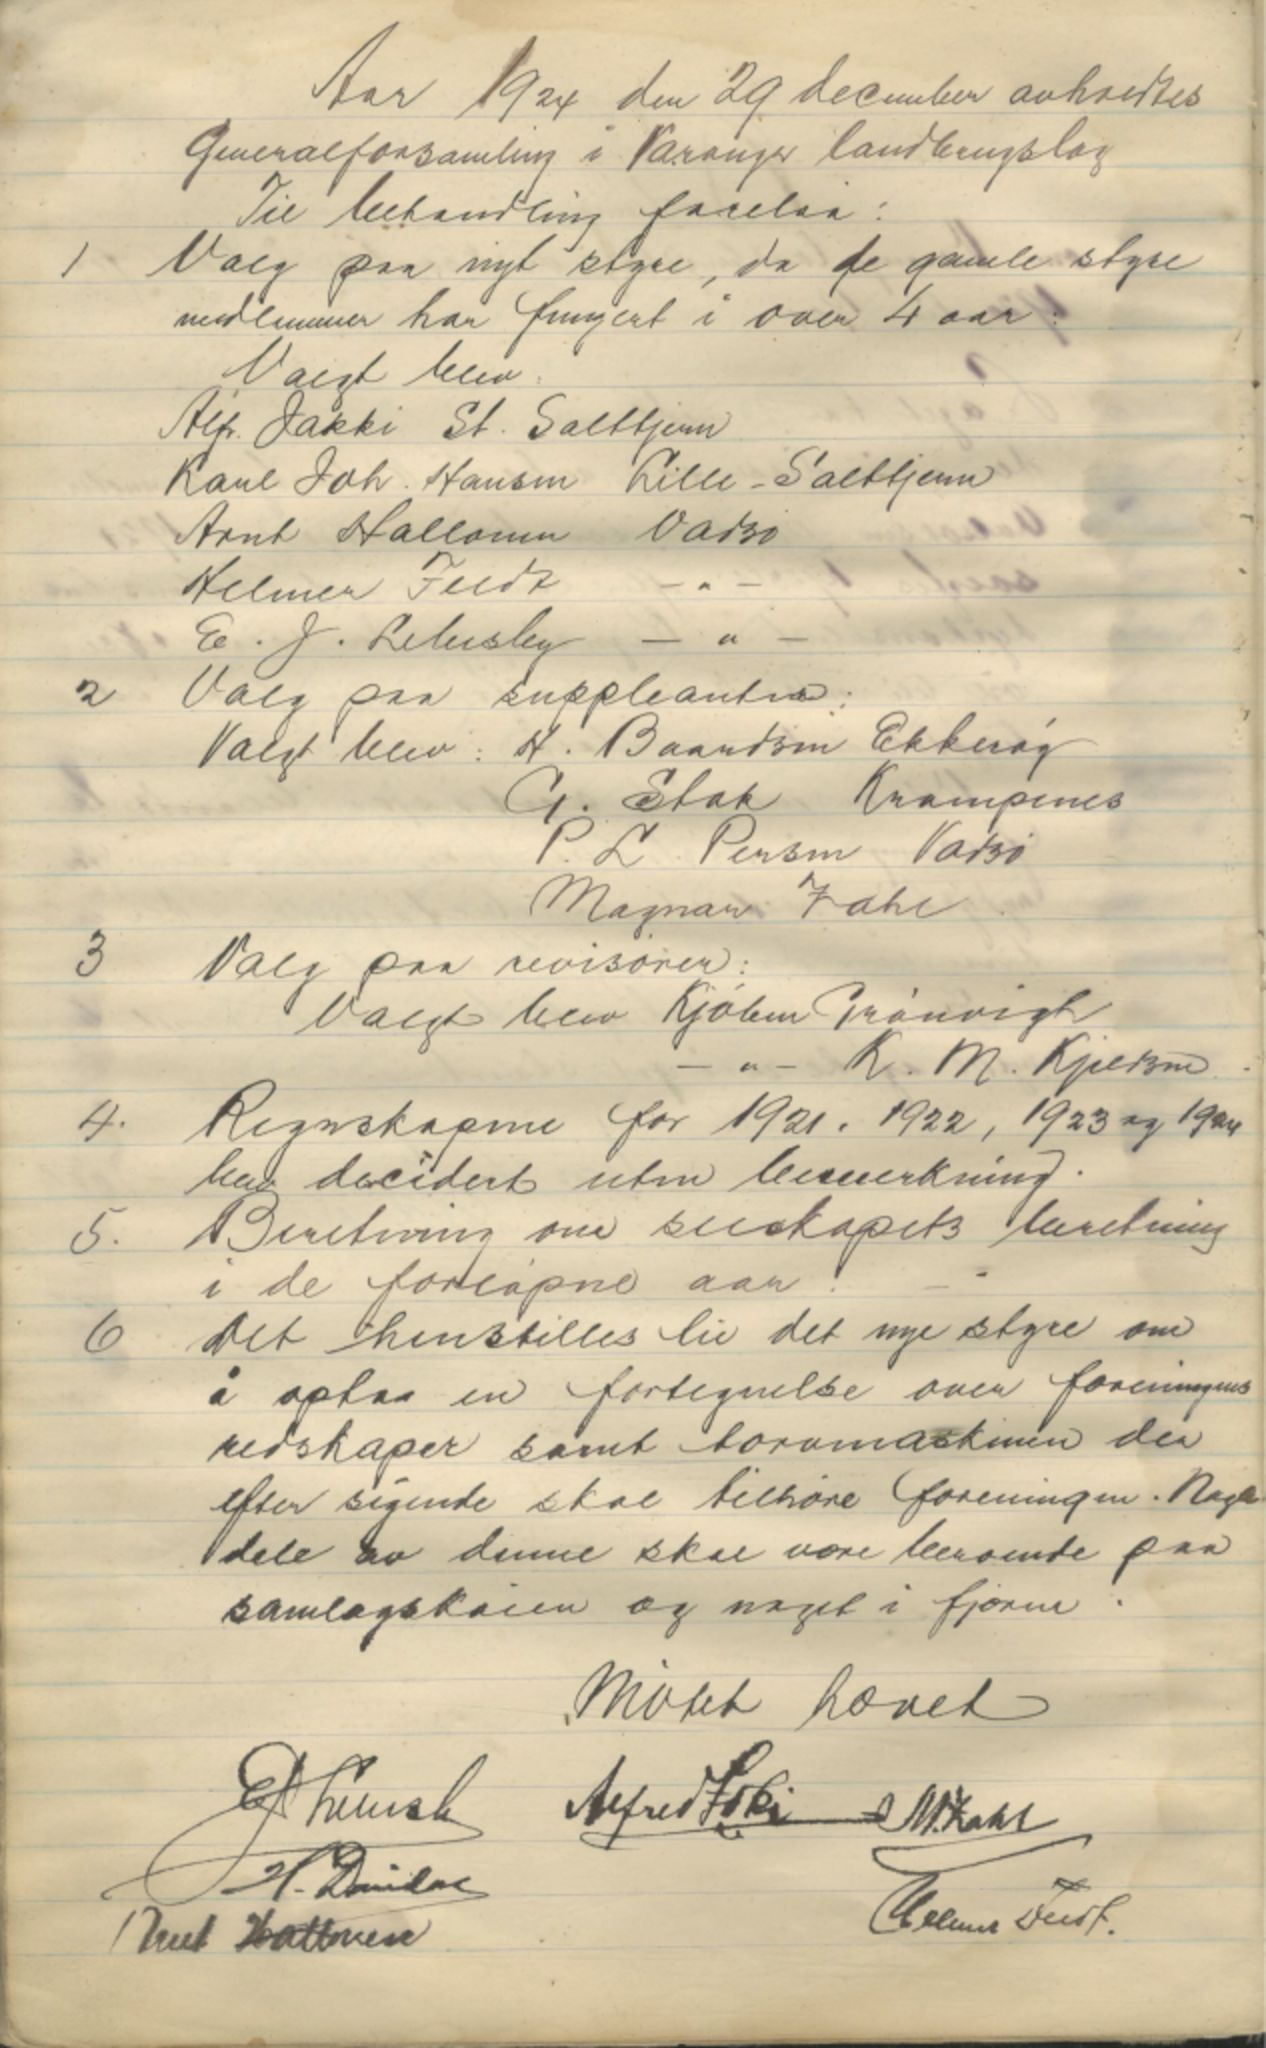 Aar 1924 den 29 december avholdtes
Generalforsamling i Varanger landbrugslag
Til behandling forelaa:
1 Valg paa nyt styre, da de gamle styre
medlemmer har fungert i over 4 aar:
Valgt blev:
Alf. Jakki St. Salttjern
Karl Joh. Hansen Lille-Salttjern
Arnt Hallonen Vadsø
Helmer Feldt -"-
E. J. -"-
2 Valg paa suppleanter:
Valgt blev: H. Baardsen Ekkerøy
G. Stok Krampenes
P. L. Persen Vadsø
Magnar Zahl
3 Valg paa revisorer:
Valgt blev Grønvigh
-"- K. M. Kjeldsen.
4. Regnskapene for 1921, 1922, 1923 og 1924
blev decidert uten bemerkning.
5. Beretning om selskapets beretning
i de forløpne aar. -"
6 Det henstilles til det nye styre om
å opta en fortegnelse over foreningens
redskaper samt torvmaskinen der
efter sigende skal tilhøre foreningen. Nogle
dele av denne skal være beroende paa
samlagskaien og noget i fjøsene.
Møtet hævet
Alfred M. Zahl
H.
Arnt Hallonen Helmer Feldt.